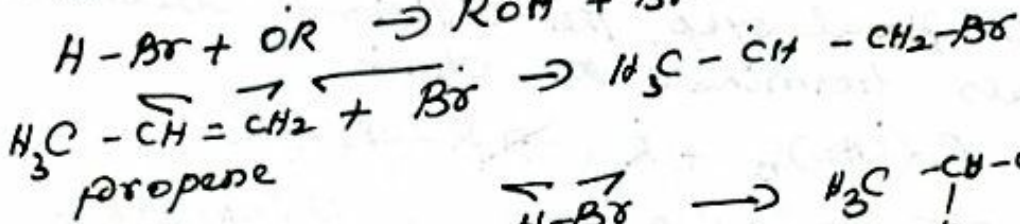 H-Br + ȮR → ROH +
H₃C - CH = CH₂ + Ḃr → H₃C - ĊH - CH₂-Br
propene
H-Br → H₃C - CH -